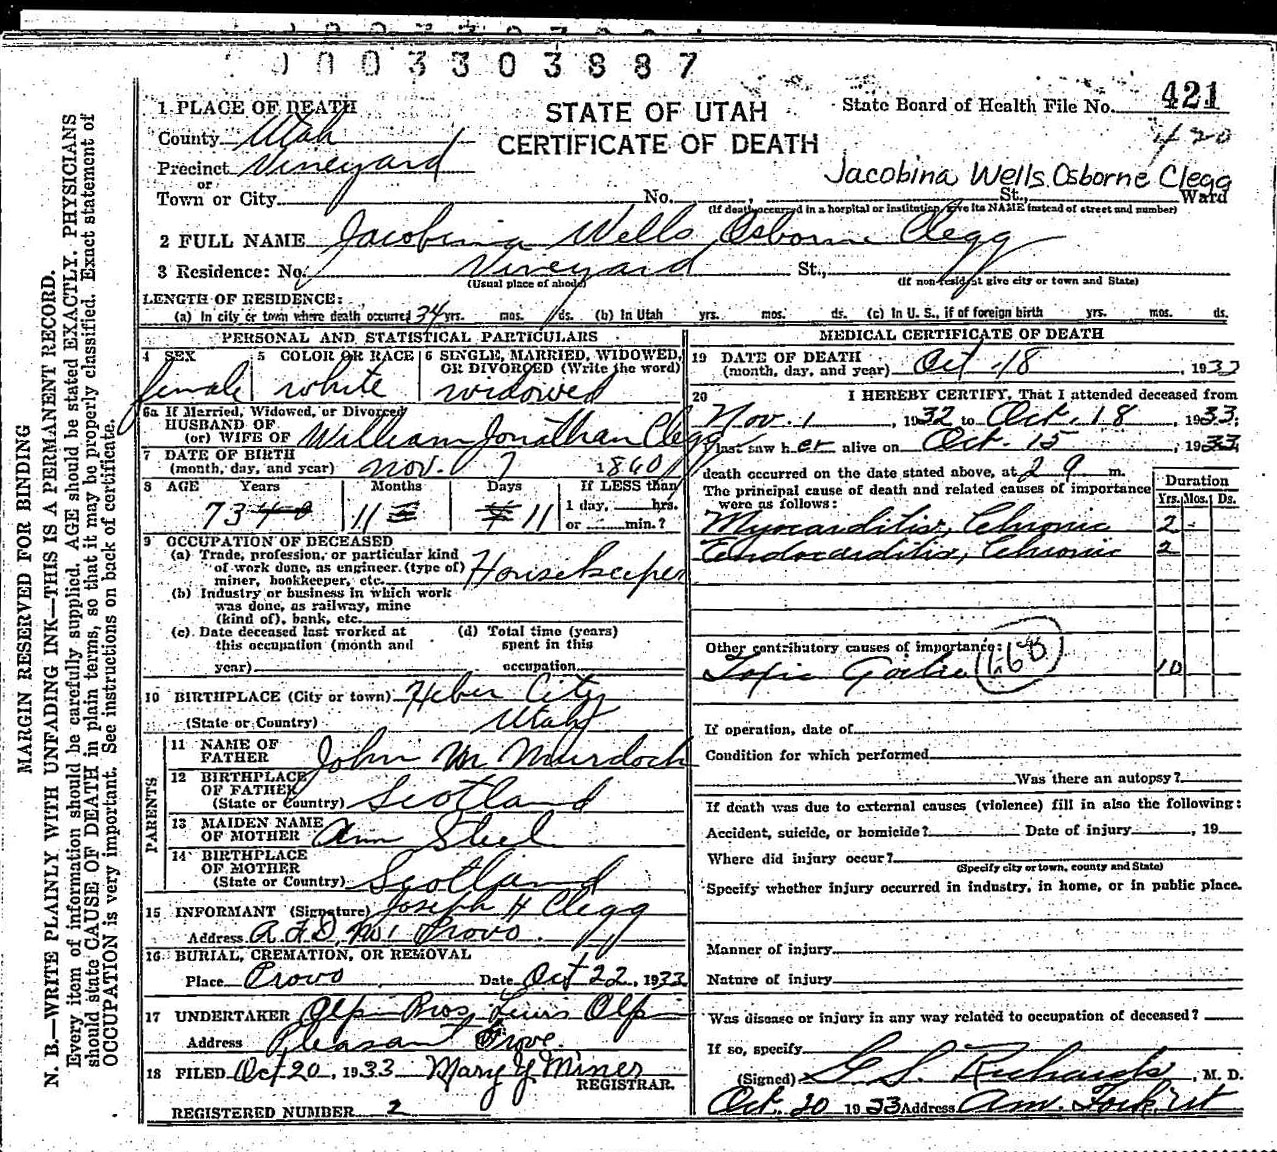 0003303887
1 PLACE OF DEATH
STATE OF UTAH
CERTIFICATE OF DEATH
State Board of Health File No. 421
420
County Utah
Precinct Vineyard
or
Town or City No. , St., Ward
Jacobina Wells Osborne Clegg
(If death occurred in a hospital or institution, give its NAME instead of street and number)
2 FULL NAME Jacobina Wells Osborne Clegg
3 Residence: No. Vineyard St.,
(Usual place of abode) (If non-resident give city or town and State)
LENGTH OF RESIDENCE:
(a) In city or town where death occurred 34 yrs. mos. ds. (b) In Utah yrs. mos. ds. (c) In U. S., if of foreign birth yrs. mos. ds.
PERSONAL AND STATISTICAL PARTICULARS
4 SEX
female
5 COLOR OR RACE
white
6 SINGLE, MARRIED, WIDOWED,
OR DIVORCED (Write the word)
widowed
6a If Married, Widowed, or Divorced
HUSBAND OF
(or) WIFE OF William Jonathan Clegg
7 DATE OF BIRTH
(month, day, and year) Nov. 7 1860
8 AGE Years Months Days If LESS than
1 day, hrs.
or min.?
73 11 11
9 OCCUPATION OF DECEASED
(a) Trade, profession, or particular kind
of work done, as engineer (type of)
miner, bookkeeper, etc. Housekeeper
(b) Industry or business in which work
was done, as railway, mine
(kind of), bank, etc.
(c) Date deceased last worked at
this occupation (month and
year)
(d) Total time (years)
spent in this
occupation
10 BIRTHPLACE (City or town) Heber City
(State or Country) Utah
PARENTS
11 NAME OF
FATHER John M Murdoch
12 BIRTHPLACE
OF FATHER
(State or Country) Scotland
13 MAIDEN NAME
OF MOTHER Ann Steel
14 BIRTHPLACE
OF MOTHER
(State or Country) Scotland
15 INFORMANT (Signature) Joseph H Clegg
Address R.F.D. No 1 Provo
16 BURIAL, CREMATION, OR REMOVAL
Place Provo Date Oct 22, 1933
17 UNDERTAKER Olpin Bros, Louis Olpin
Address Pleasant Grove.
18 FILED Oct 20, 1933 Mary Y Miner
REGISTRAR.
REGISTERED NUMBER 2
MEDICAL CERTIFICATE OF DEATH
19 DATE OF DEATH
(month, day, and year) Oct 18, 1933
20 I HEREBY CERTIFY, That I attended deceased from
Nov. 1, 1932 to Oct. 18, 1933;
I last saw her alive on Oct. 15, 1933;
death occurred on the date stated above, at 2 a m.
The principal cause of death and related causes of importance
were as follows:
Duration
Yrs. Mos. Ds.
Myocarditis, Chronic 2
Endocarditis, Chronic 2
Other contributory causes of importance:
Toxic Goitre 66B 10
If operation, date of
Condition for which performed
Was there an autopsy?
If death was due to external causes (violence) fill in also the following:
Accident, suicide, or homicide? Date of injury , 19
Where did injury occur?
(Specify city or town, county and State)
Specify whether injury occurred in industry, in home, or in public place.
Manner of injury
Nature of injury
Was disease or injury in any way related to occupation of deceased?
If so, specify
(Signed) G. S. Richards, M. D.
Oct. 20 1933 Address Am. Fork, Ut
MARGIN RESERVED FOR BINDING
N. B.—WRITE PLAINLY WITH UNFADING INK—THIS IS A PERMANENT RECORD.
Every item of information should be carefully supplied. AGE should be stated EXACTLY. PHYSICIANS
should state CAUSE OF DEATH in plain terms, so that it may be properly classified. Exact statement of
OCCUPATION is very important. See instructions on back of certificate.